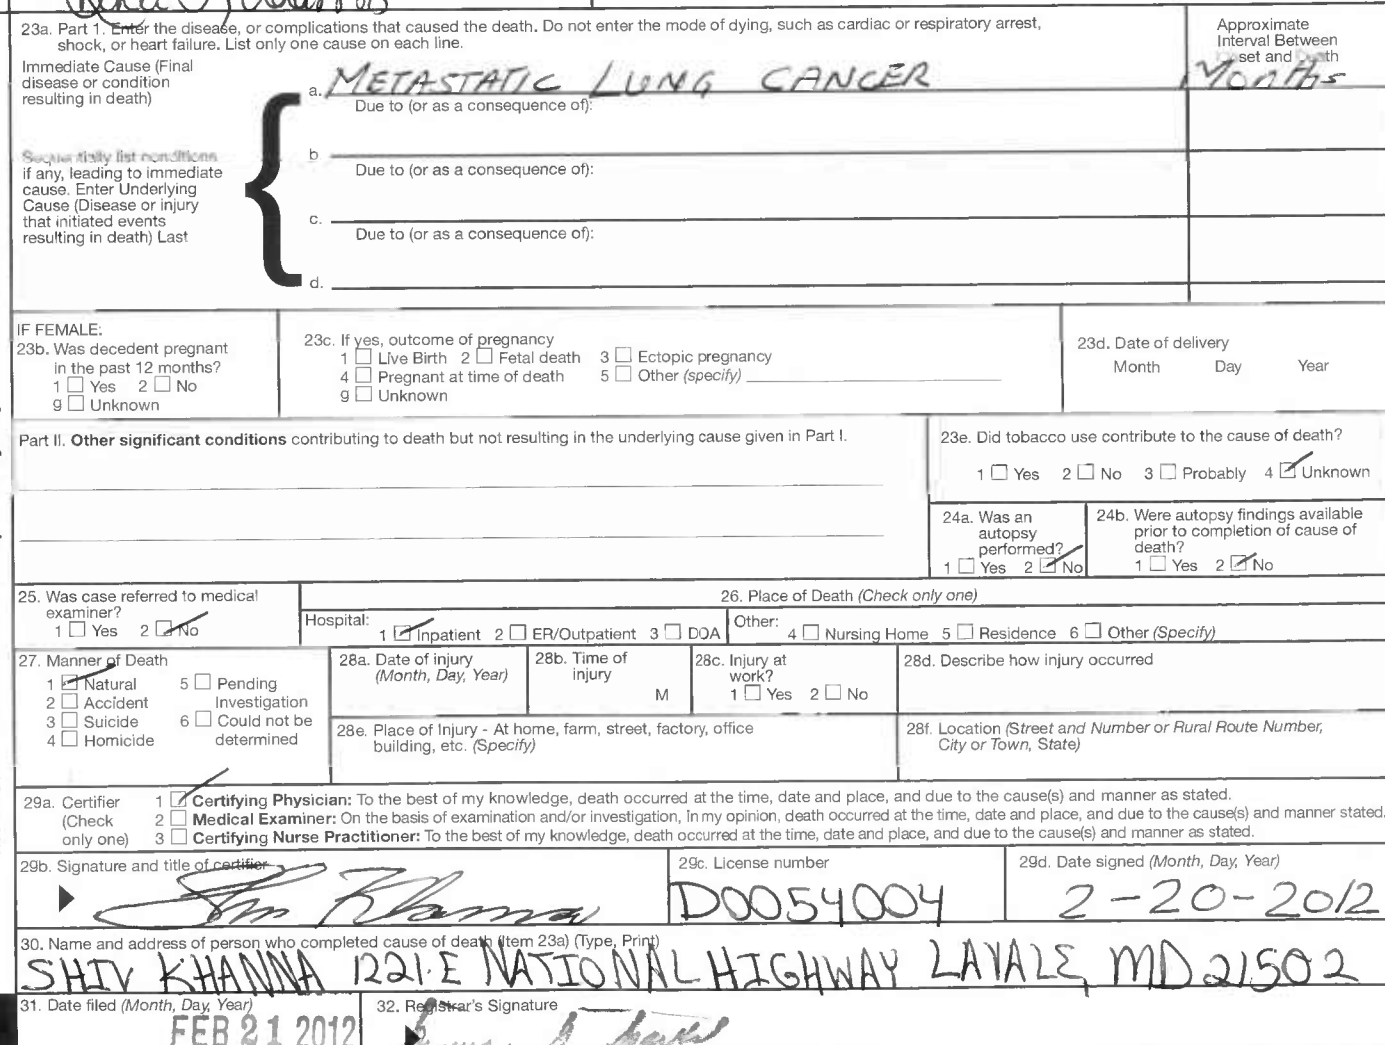 23a. Part 1. Enter the disease, or complications that caused the death. Do not enter the mode of dying, such as cardiac or respiratory arrest,
shock, or heart failure. List only one cause on each line.
Approximate
Interval Between
set and Death
Immediate Cause (Final
disease or condition
resulting in death)
a. METASTATIC LUNG CANCER
Months
Due to (or as a consequence of):
Sequentially list conditions
if any, leading to immediate
cause. Enter Underlying
Cause (Disease or injury
that initiated events
resulting in death) Last
b
Due to (or as a consequence of):
c.
Due to (or as a consequence of):
d.
IF FEMALE:
23b. Was decedent pregnant
in the past 12 months?
1 ☐ Yes 2 ☐ No
9 ☐ Unknown
23c. If yes, outcome of pregnancy
1 ☐ Live Birth 2 ☐ Fetal death 3 ☐ Ectopic pregnancy
4 ☐ Pregnant at time of death 5 ☐ Other (specify)
9 ☐ Unknown
23d. Date of delivery
Month Day Year
Part II. Other significant conditions contributing to death but not resulting in the underlying cause given in Part I.
23e. Did tobacco use contribute to the cause of death?
1 ☐ Yes 2 ☐ No 3 ☐ Probably 4 ☑ Unknown
24a. Was an
autopsy
performed?
1 ☐ Yes 2 ☑ No
24b. Were autopsy findings available
prior to completion of cause of
death?
1 ☐ Yes 2 ☑ No
25. Was case referred to medical
examiner?
1 ☐ Yes 2 ☑ No
26. Place of Death (Check only one)
Hospital:
1 ☑ Inpatient 2 ☐ ER/Outpatient 3 ☐ DOA
Other:
4 ☐ Nursing Home 5 ☐ Residence 6 ☐ Other (Specify)
27. Manner of Death
1 ☑ Natural 5 ☐ Pending
2 ☐ Accident Investigation
3 ☐ Suicide 6 ☐ Could not be
4 ☐ Homicide determined
28a. Date of injury
(Month, Day, Year)
28b. Time of
injury
M
28c. Injury at
work?
1 ☐ Yes 2 ☐ No
28d. Describe how injury occurred
28e. Place of Injury - At home, farm, street, factory, office
building, etc. (Specify)
28f. Location (Street and Number or Rural Route Number,
City or Town, State)
29a. Certifier
(Check
only one)
1 ☑ Certifying Physician: To the best of my knowledge, death occurred at the time, date and place, and due to the cause(s) and manner as stated.
2 ☐ Medical Examiner: On the basis of examination and/or investigation, in my opinion, death occurred at the time, date and place, and due to the cause(s) and manner stated.
3 ☐ Certifying Nurse Practitioner: To the best of my knowledge, death occurred at the time, date and place, and due to the cause(s) and manner as stated.
29b. Signature and title of certifier
Shiv Khanna
29c. License number
D0054004
29d. Date signed (Month, Day, Year)
2-20-2012
30. Name and address of person who completed cause of death (Item 23a) (Type, Print)
SHIV KHANNA 1221·E NATIONAL HIGHWAY LAVALE, MD 21502
31. Date filed (Month, Day, Year)
FEB 21 2012
32. Registrar's Signature